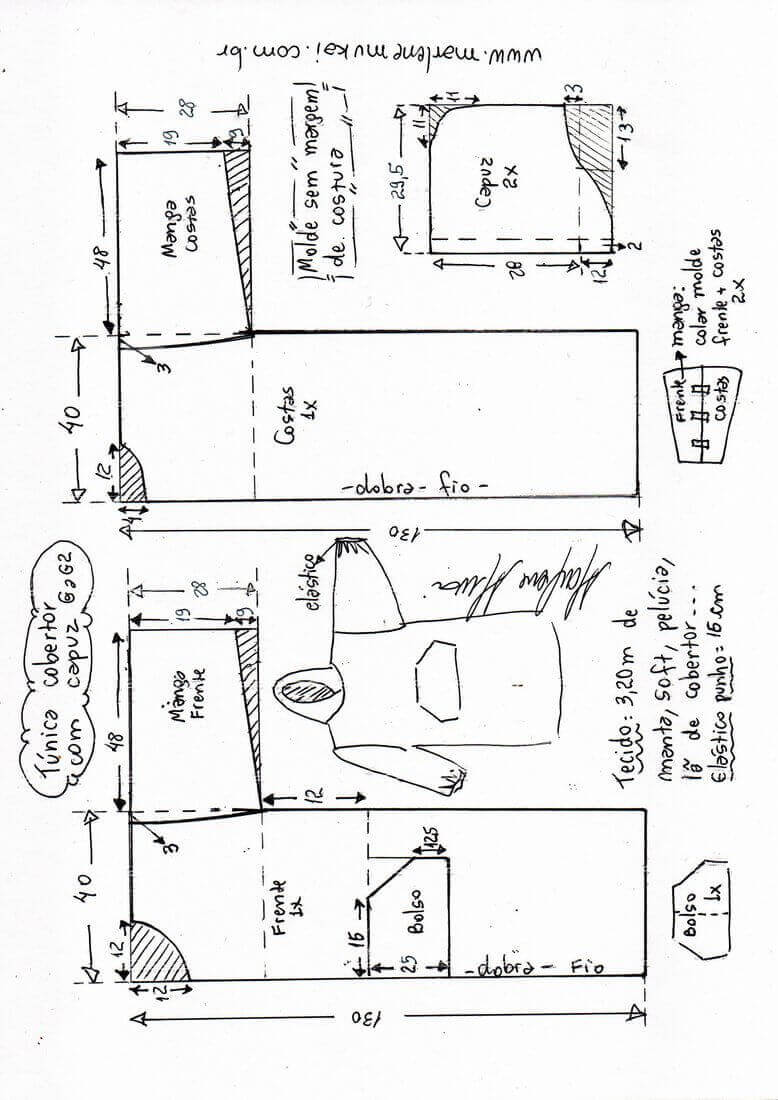 www.marlenemukai.com.br
Túnica cobertor
com capuz G a G2
28
19
9
48
Manga
Frente
3
40
12
12
Frente
1x
12
15
Bolso
12,5
25
-dobra- Fio
130
Bolso
1x
elástico
Tecido: 3,20m de
manta, soft, pelúcia,
lã de cobertor...
Elástico punho = 15cm
28
19
9
48
Manga
Costas
3
40
12
4
Costas
1x
-dobra- fio-
130
Molde sem margem
de costura
11
11
3
13
29,5
Capuz
2x
28
12
2
manga:
colar molde
frente + costas
2x
Frente
Costas